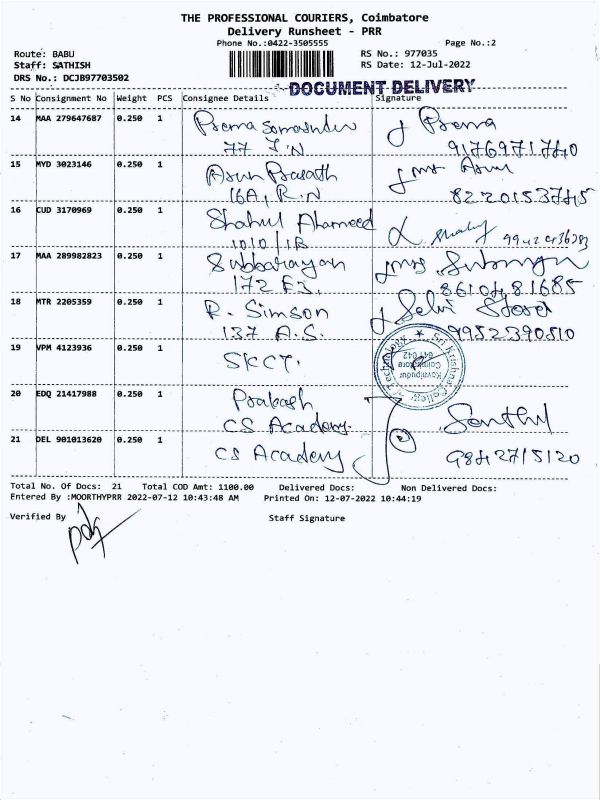 THE PROFESSIONAL COURIERS, Coimbatore
Delivery Runsheet - PRR
Phone No.:0422-3505555
Page No.:2
Route: BABU
RS No.: 977035
Staff: SATHISH
RS Date: 12-Jul-2022
DRS No.: DCJB97703502
DOCUMENT DELIVERY
S No Consignment No Weight PCS Consignee Details Signature
14 MAA 279647687 0.250 1 Prema Prema
77 9176971740
15 MYD 3023146 0.250 1 Arun Prasath Mrs Arun
16A, R.N 8220153745
16 CUD 3170969 0.250 1 Shahul Ahameed
1010/1B
17 MAA 289982823 0.250 1 Subbarayan Mrs
172 8610481685
18 MTR 2205359 0.250 1 R. Simson Selvi
137 A.S. 9952390510
19 VPM 4123936 0.250 1 SKCT.
Sri Krishna College of Technology
Kovaipudur
Coimbatore
641 042
20 EDQ 21417988 0.250 1 Prakash
CS Academy. Senthil
21 DEL 901013620 0.250 1 CS Academy 9842715120
Total No. Of Docs: 21 Total COD Amt: 1100.00 Delivered Docs: Non Delivered Docs:
Entered By :MOORTHYPRR 2022-07-12 10:43:48 AM Printed On: 12-07-2022 10:44:19
Verified By Staff Signature